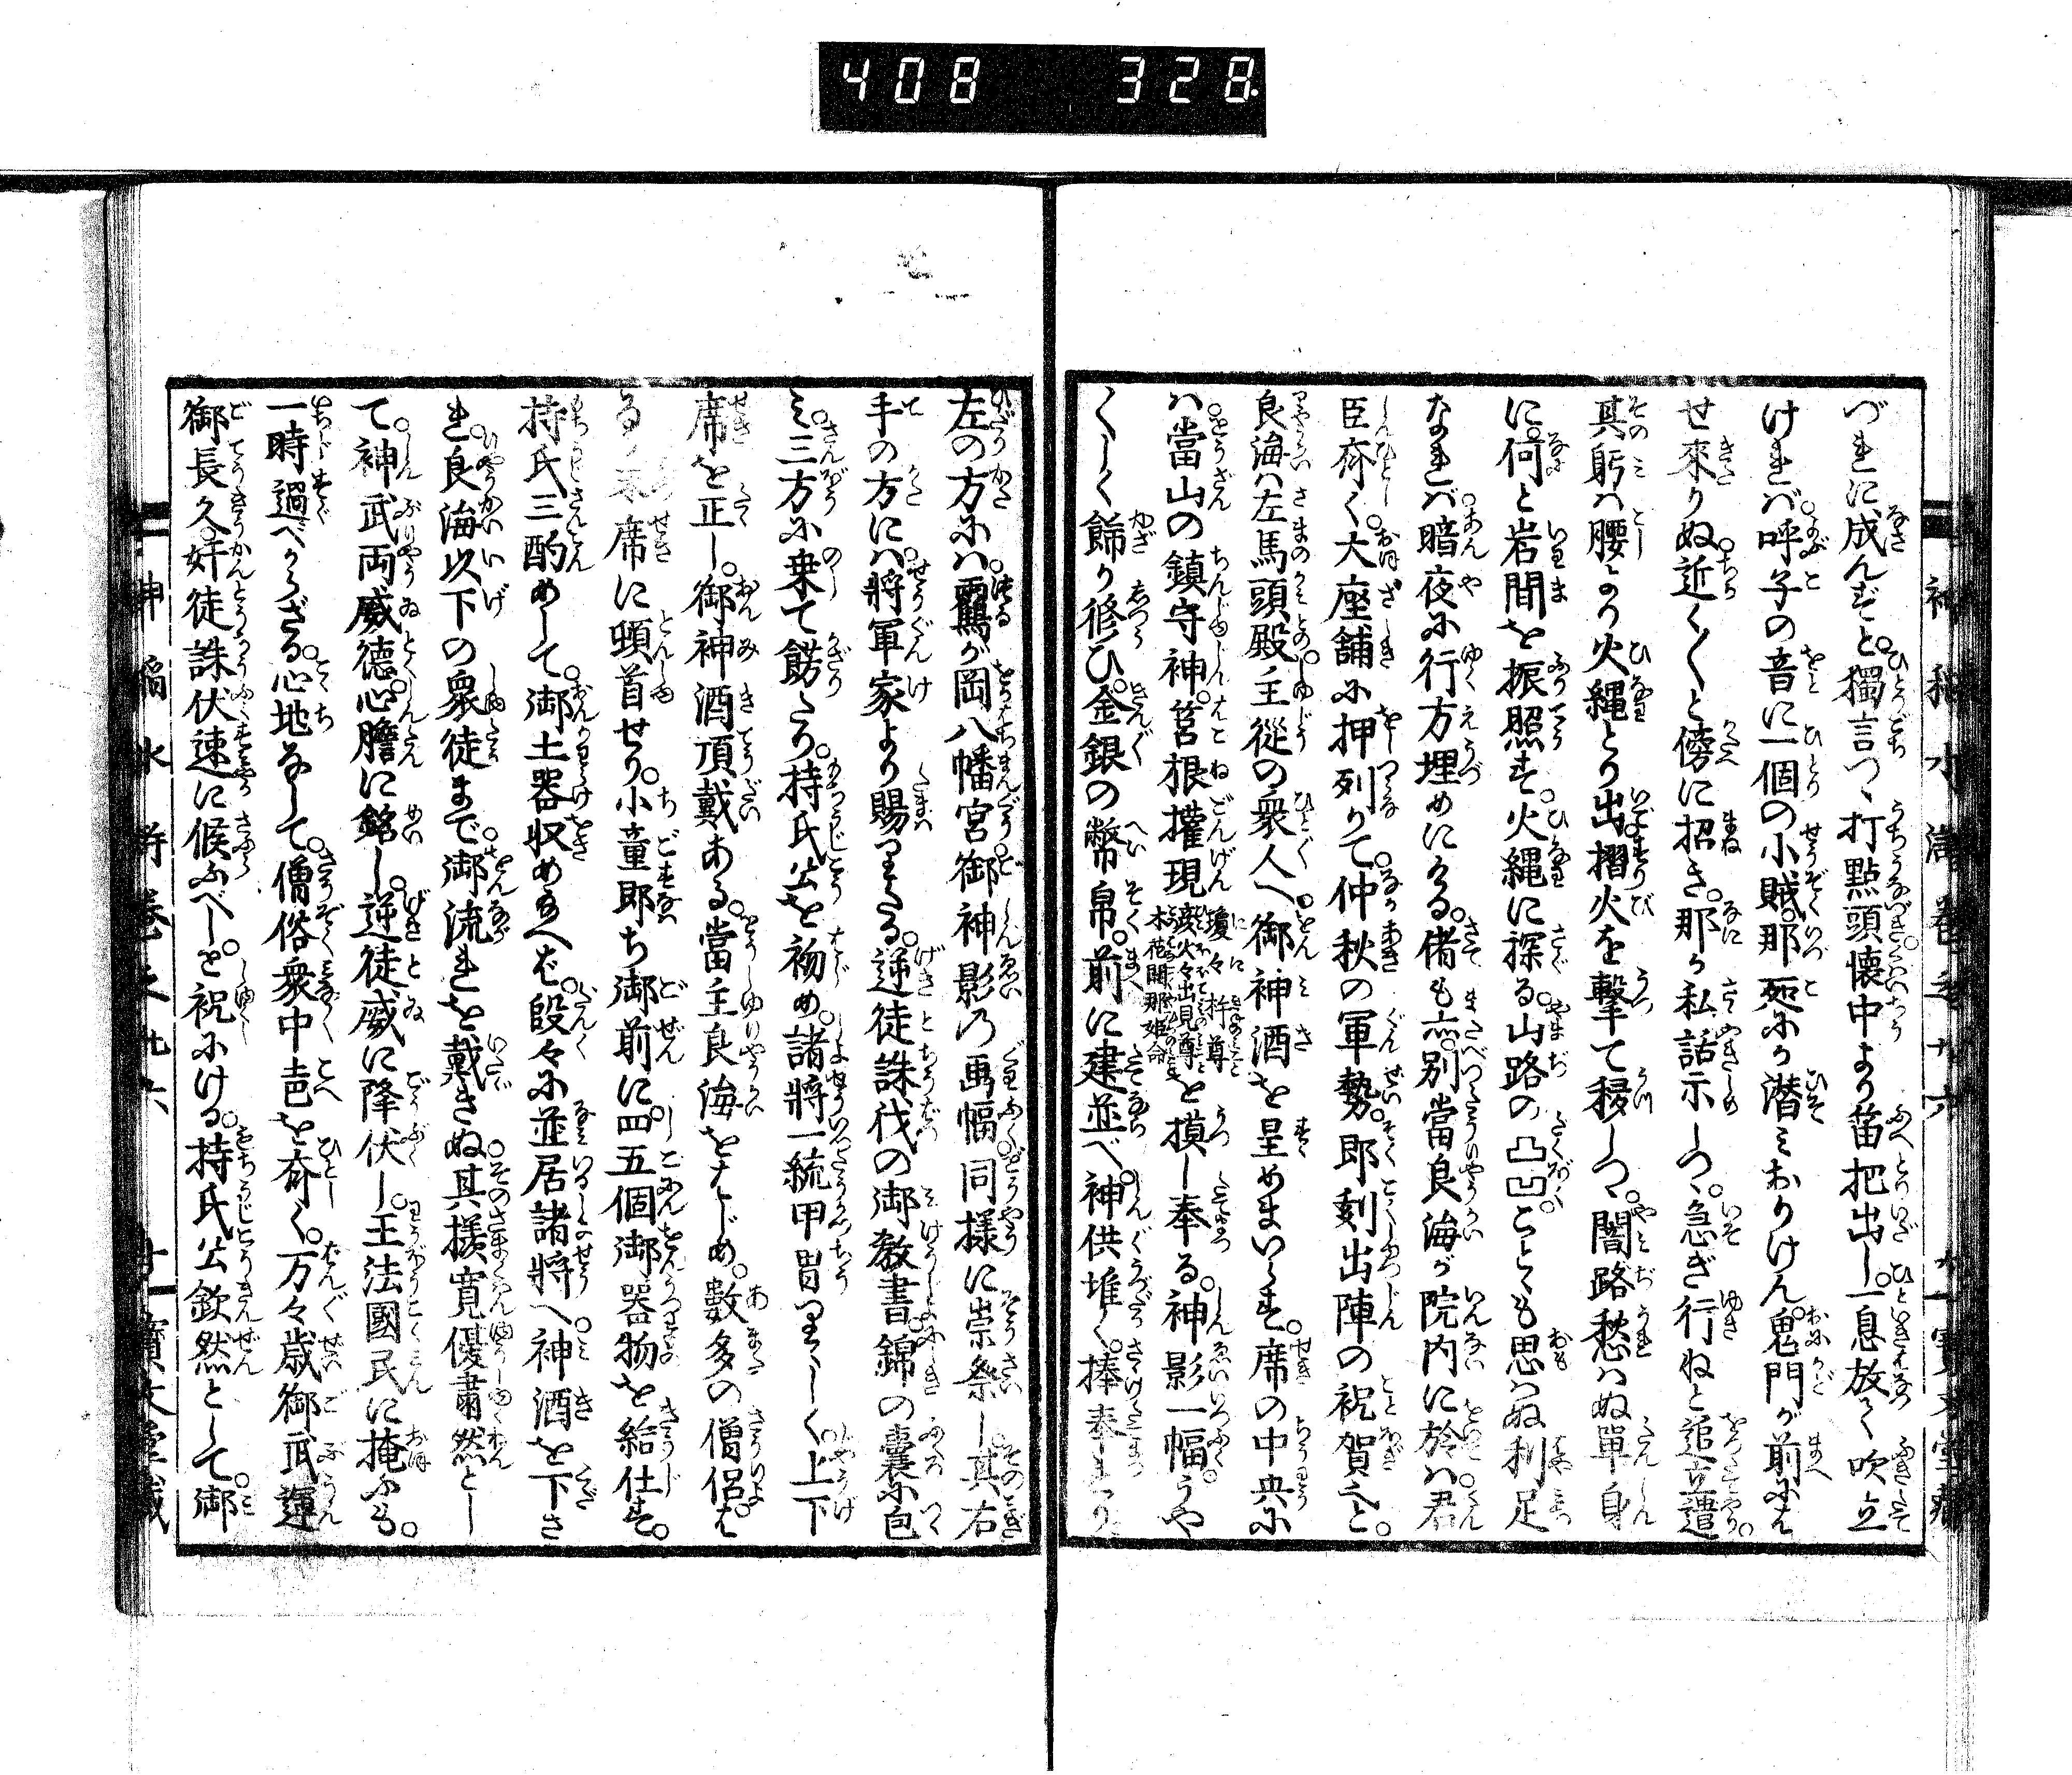 408 328
づれに成んずと。獨言つゝ打點頭懐中より笛把出し。一息放て吹立
ければ。呼子の音に一個の小賊。那処にか潜みおりけん。鬼門が前には
せ來りぬ。近く〳〵と傍に招き。那か私話示しつゝ。急ぎ行ねと追立遣。
其躬は腰より火縄とり出摺火を撃て移しつゝ。闇路愁はぬ單身
に。何と岩間を振照す。火縄に探る。山路の凸凹。ことゝも思はぬ利足
なれば。暗夜に行方埋めにける。偖も亦別當良海が院内に於は。君
臣齊く。大座舗に押列りて。仲秋の軍勢。即刻出陣の祝賀と。
良海は左馬頭殿。主從の衆人へ。御神酒を呈めまいらす。席の中央に
は。當山の鎮守神。筥根權現瓊々杵尊火々出見尊木花開耶姫命を摸し奉る。神影一幅。うや
〳〵しく餝り修ひ。金銀の幣帛。前に建並べ。神供堆く。捧奉れり
左の方には。鶴が岡八幡宮御神影の画幅同様に崇祭し。其右
手の方には。將軍家より賜はりたる。逆徒誅伐の御教書。錦の嚢に包
み。三方に乗て餝たり。持氏公を初め。諸將一統甲冑りゝしく。上下
席を正し。御神酒頂戴ある。當主良海をはじめ。數多の僧侶は
る末席に頓首せり。小童即ち御前に。四五個御器物を給仕す。
持氏三酌めして。御土器収め玉へば。段々に並居諸將へ。神酒を下さ
れ。良海以下の衆徒まで。御流れを戴きぬ。其様寛優肅然とし
て。神武両威徳。心膽に銘し。逆徒威に降伏し。王法國民に掩ふも。
一時過べからざる。心地なして。僧俗衆中壱を齊く。万々歳御武運
御長久。奸徒誅伏速に候ふべし。と祝ける。持氏公欽然として。御
神稲水滸巻之廿六 廿一 寶文堂藏